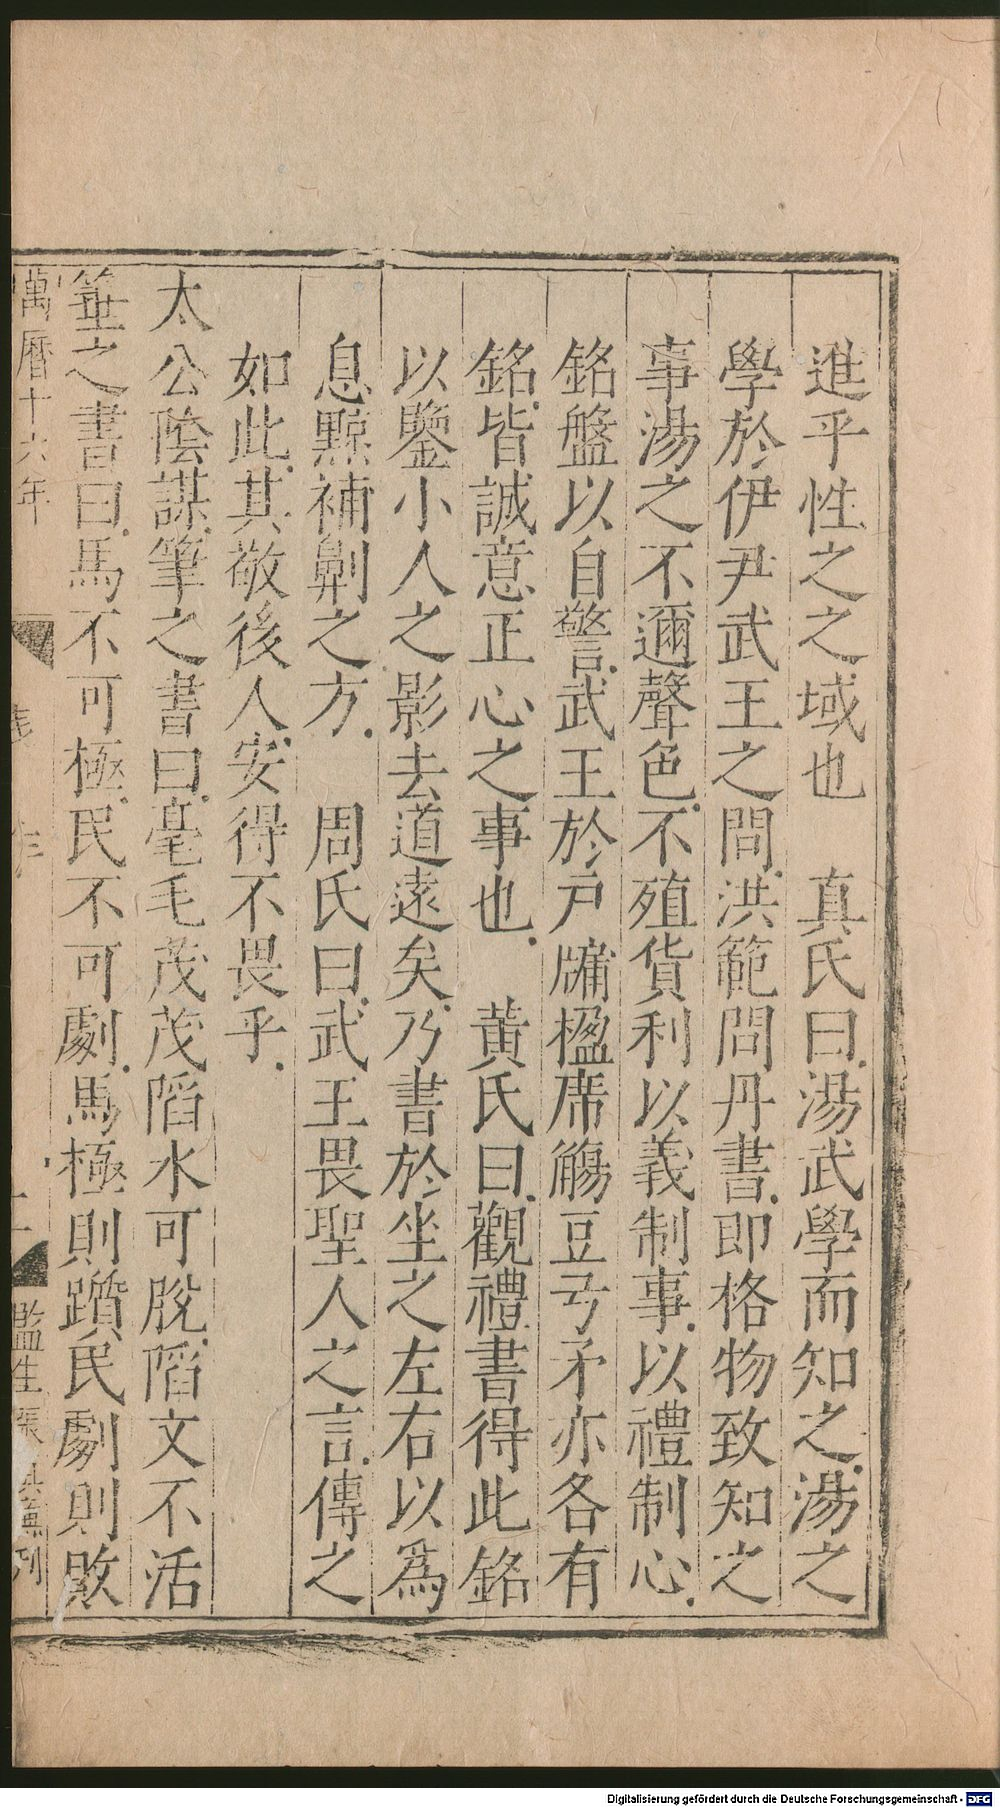 進乎性之之域也　真氏曰湯武學而知之湯之
學於伊尹武王之問洪範問丹書即格物致知之
事湯之不邇聲色不殖貨利以義制事以禮制心
銘盤以自警武王於戶牖楹席觴豆弓矛亦各有
銘皆誠意正心之事也　黃氏曰觀禮書得此銘
以鑒小人之影去道遠矣乃書於坐之左右以為
息黥補劓之方　周氏曰武王畏聖人之言傳之
如此其敬後人安得不畏乎
太公陰謀筆之書曰毫毛茂茂陷水可脫陷文不活
箠之書曰馬不可極民不可劇馬極則躓民劇則敗
萬曆十六年
監生張
刋
Digitalisierung gefördert durch die Deutsche Forschungsgemeinschaft - DFG